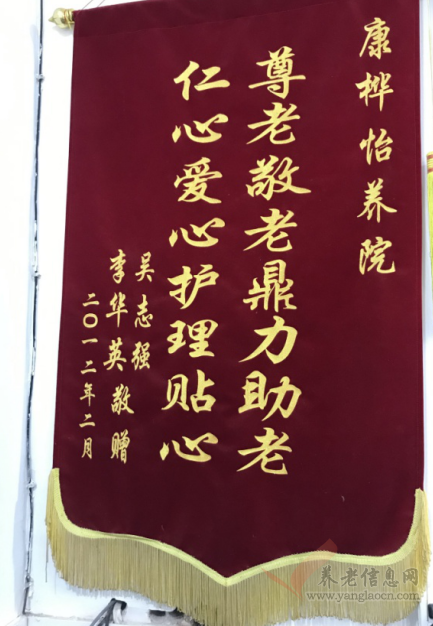 康桦怡养院
尊老敬老鼎力助老
仁心爱心护理贴心
吴志强
李华英敬赠
二〇一二年二月
养老信息网
www.yanglaocn.com